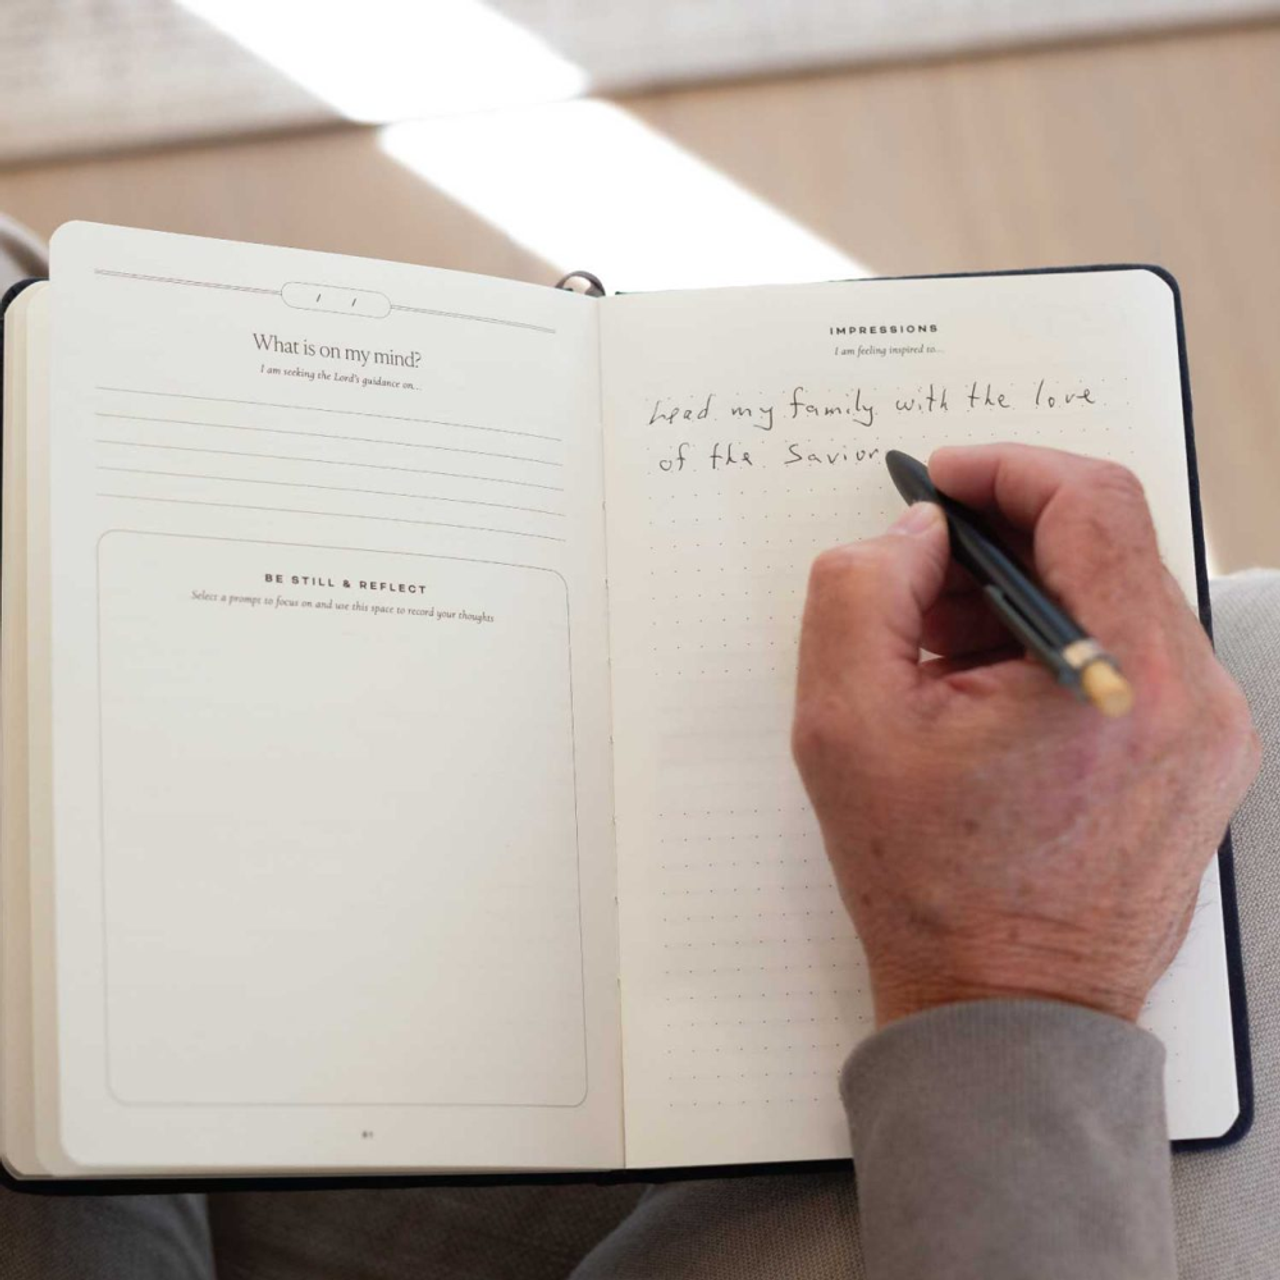 / /
What is on my mind?
I am seeking the Lord's guidance on...
BE STILL & REFLECT
Select a prompt to focus on and use this space to record your thoughts
IMPRESSIONS
I am feeling inspired to...
Lead my family with the love
of the Savior